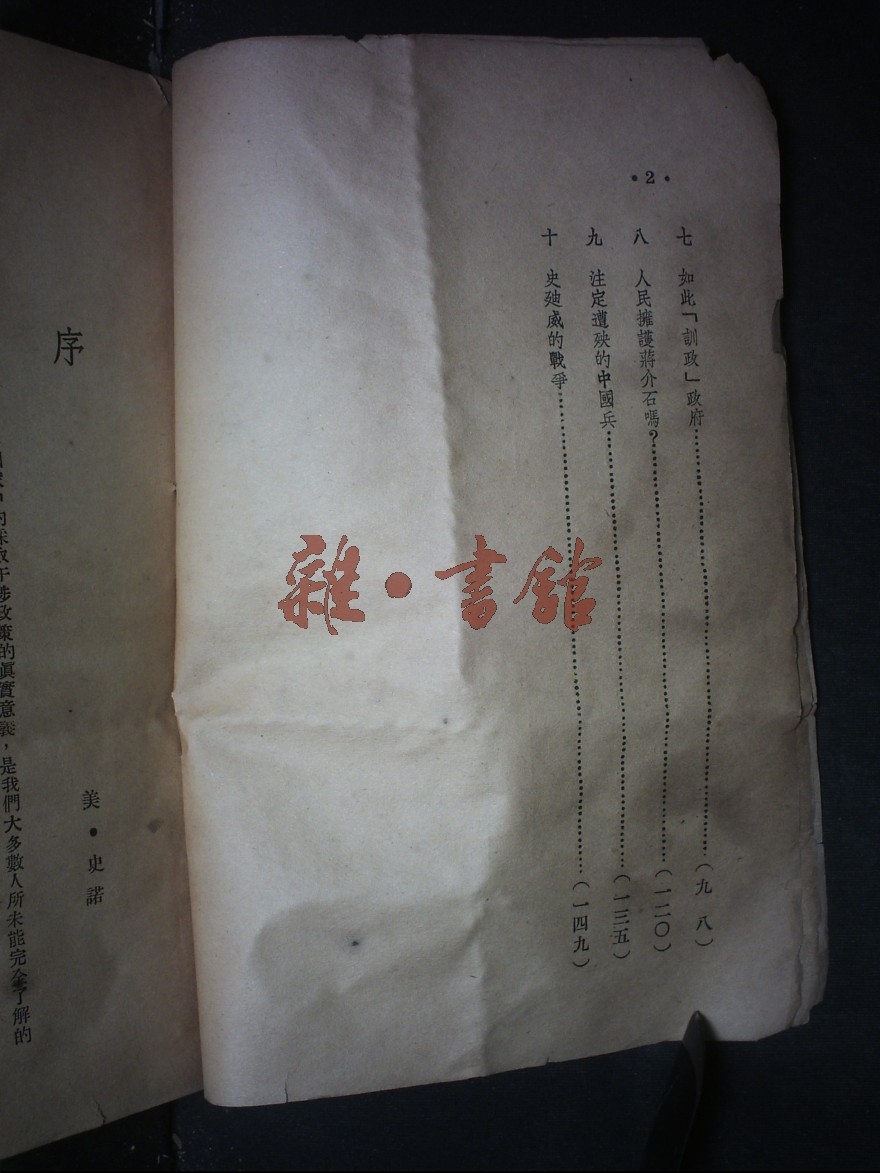 •2•
七 如此「訓政」政府……(九八)
八 人民擁護蔣介石嗎?……(一二〇)
九 注定遭殃的中國兵……(一三五)
十 史迪威的戰爭……(一四九)
雜•書館
序
美•史諾
干涉政策的眞實意義，是我們大多數人所未能完全了解的